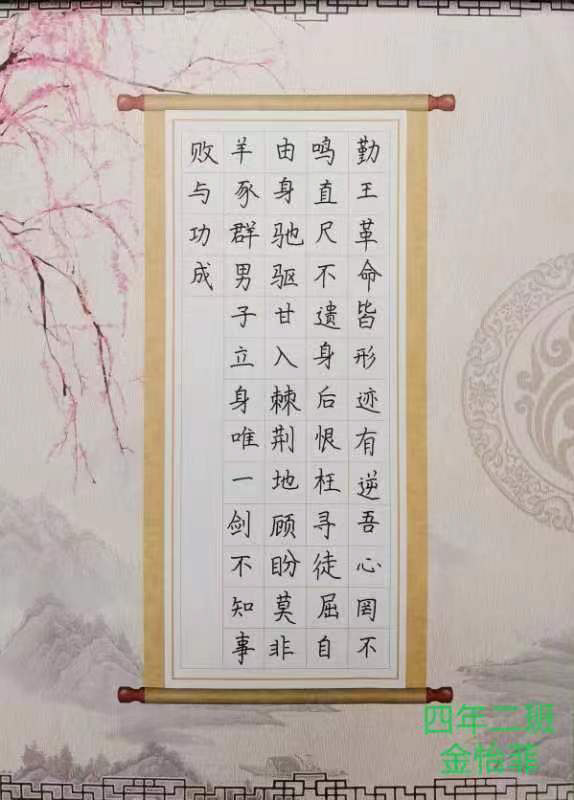 勤王革命皆形迹有逆吾心罔不
鸣直尺不遗身后恨枉寻徒屈自
由身驰驱甘入棘荆地顾盼莫非
羊豕群男子立身唯一剑不知事
败与功成
四年二班
金怡菲